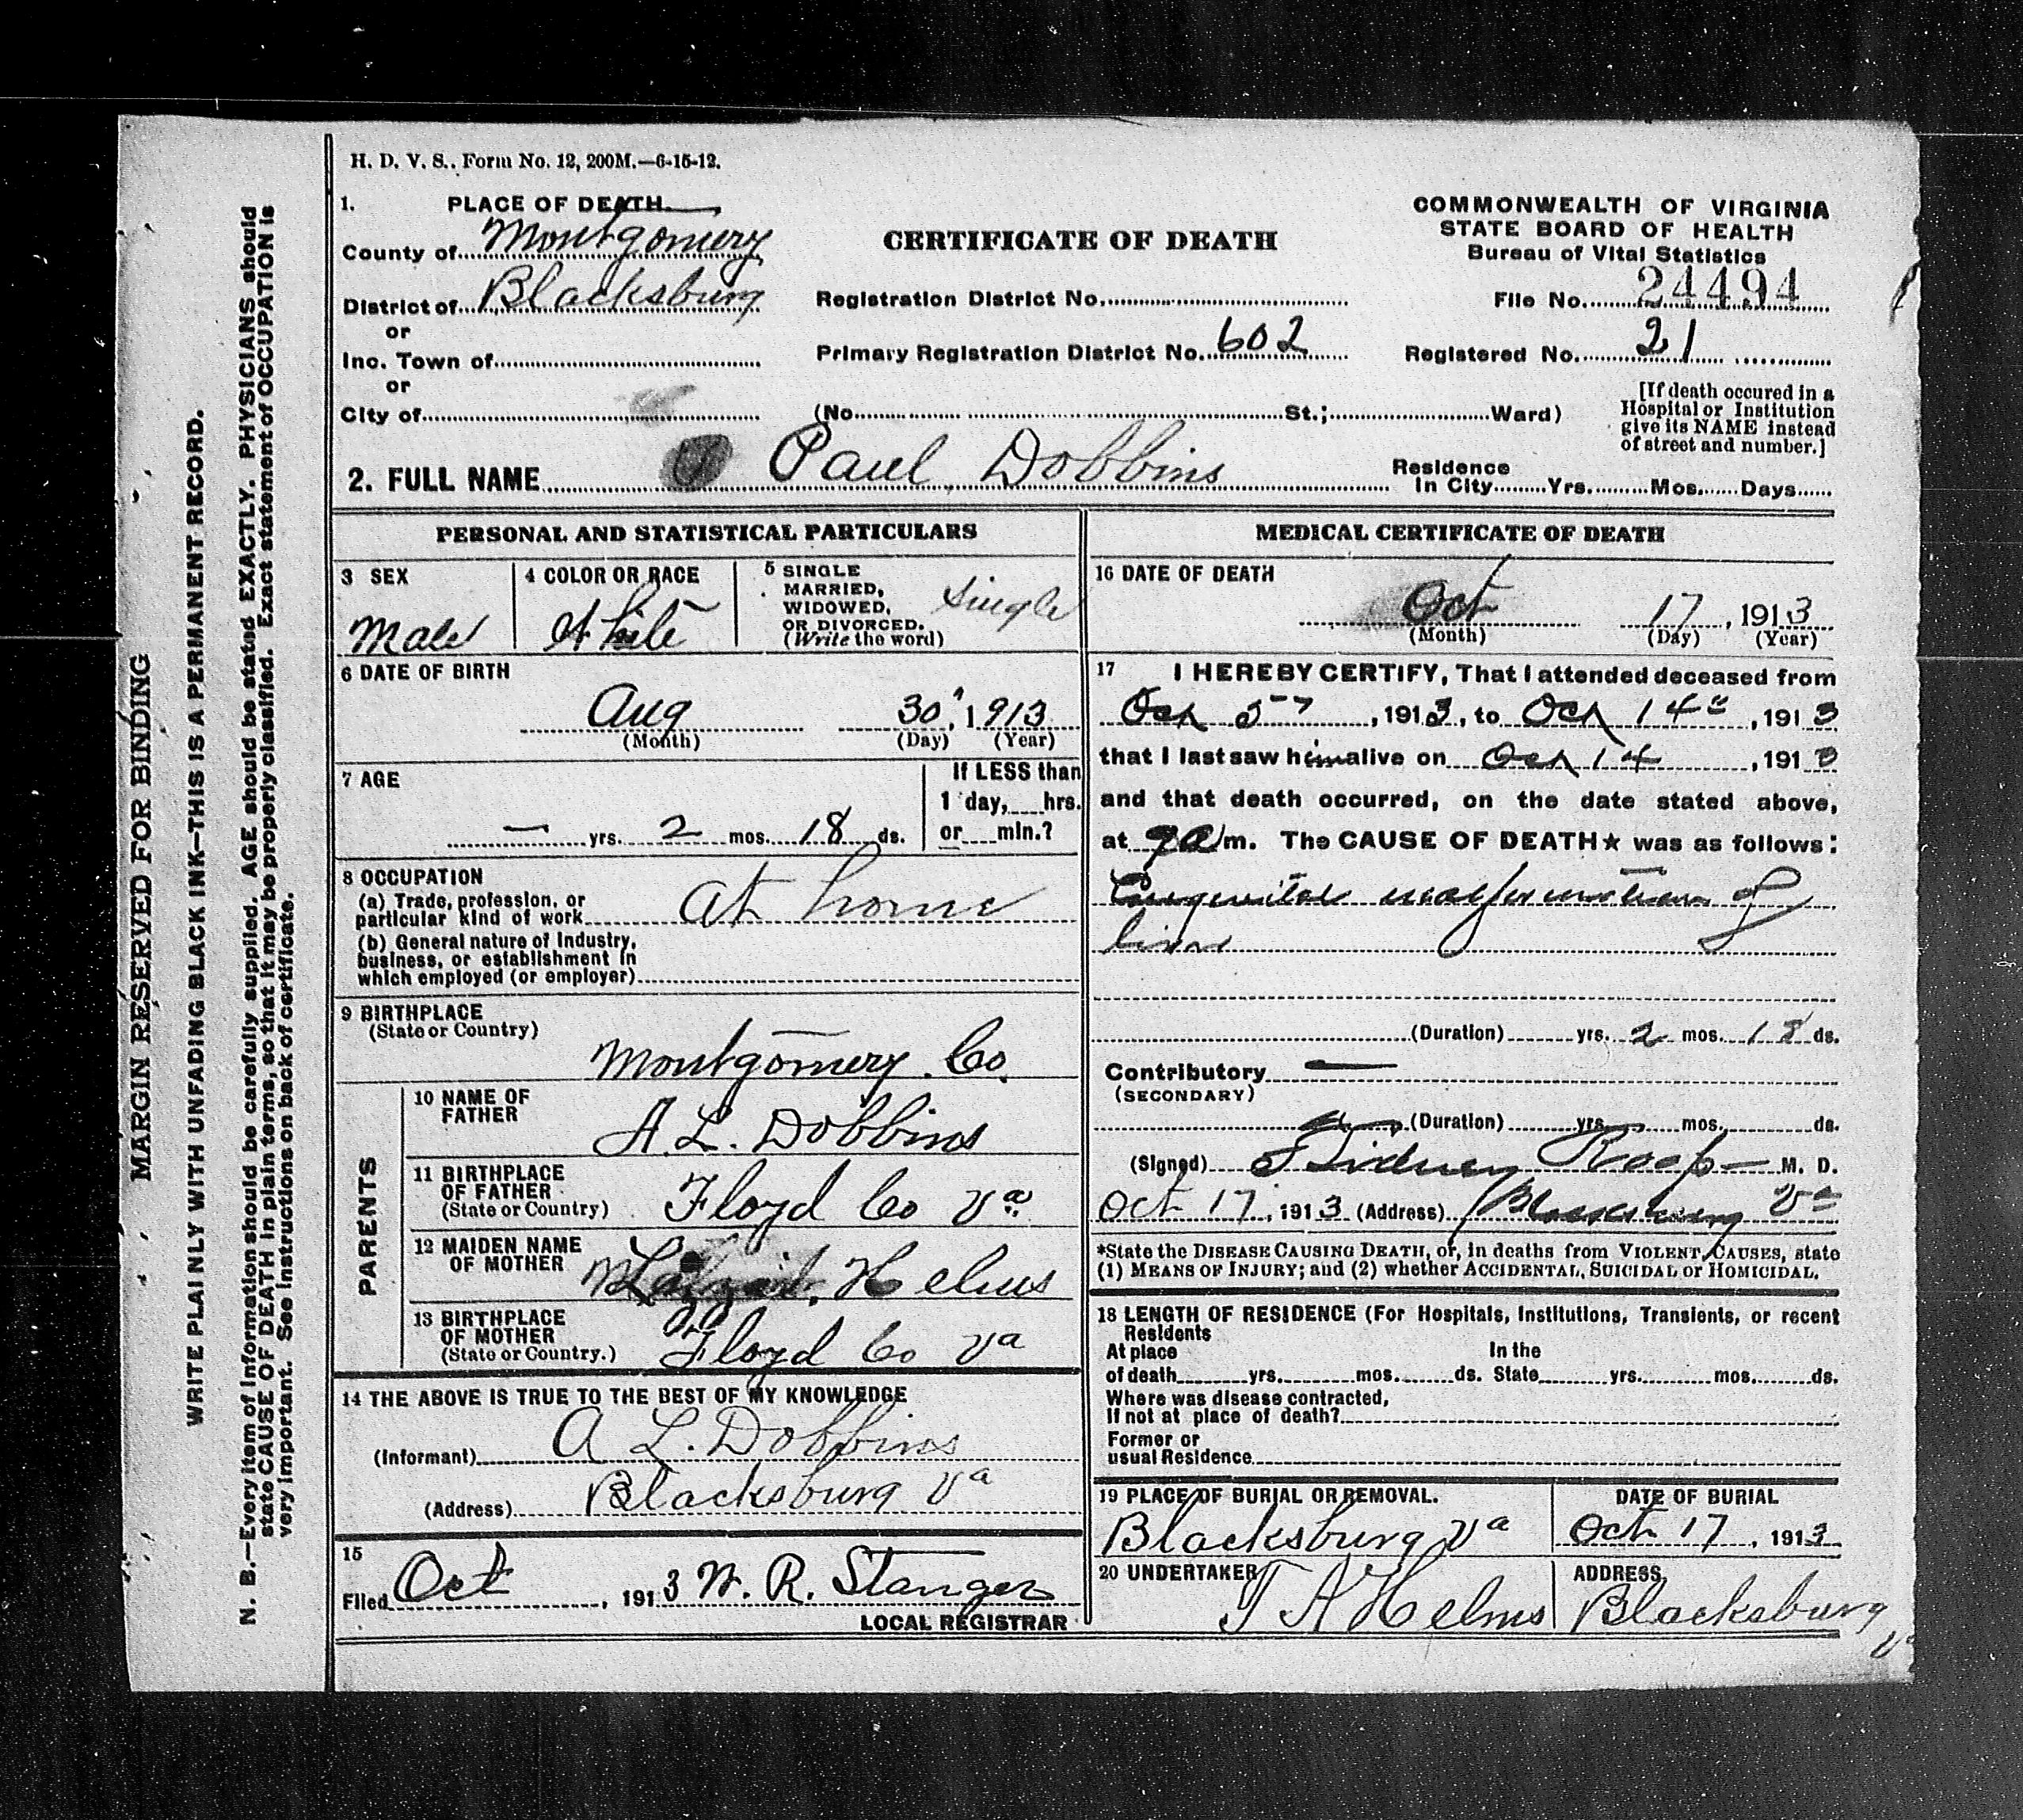 H. D. V. S., Form No. 12, 200M.—6-15-12.
1. PLACE OF DEATH
County of Montgomery
District of Blacksburg
or
Inc. Town of
or
City of
CERTIFICATE OF DEATH
Registration District No.
Primary Registration District No. 602
(No. St.; Ward)
COMMONWEALTH OF VIRGINIA
STATE BOARD OF HEALTH
Bureau of Vital Statistics
File No. 24494
Registered No. 21
[If death occured in a
Hospital or Institution
give its NAME instead
of street and number.]
2. FULL NAME Paul Dobbins
Residence
In City Yrs. Mos. Days
PERSONAL AND STATISTICAL PARTICULARS
3 SEX
Male
4 COLOR OR RACE
White
5 SINGLE
MARRIED,
WIDOWED,
OR DIVORCED.
(Write the word)
Single
6 DATE OF BIRTH
Aug 30, 1913
(Month) (Day) (Year)
7 AGE
— yrs. 2 mos. 18 ds.
If LESS than
1 day, hrs.
or min.?
8 OCCUPATION
(a) Trade, profession, or
particular kind of work at home
(b) General nature of Industry,
business, or establishment in
which employed (or employer)
9 BIRTHPLACE
(State or Country)
Montgomery Co.
PARENTS
10 NAME OF
FATHER
A. L. Dobbins
11 BIRTHPLACE
OF FATHER
(State or Country) Floyd Co Va.
12 MAIDEN NAME
OF MOTHER
Helms
13 BIRTHPLACE
OF MOTHER
(State or Country.) Floyd Co Va
14 THE ABOVE IS TRUE TO THE BEST OF MY KNOWLEDGE
(Informant) A L. Dobbins
(Address) Blacksburg Va
15
Filed Oct, 1913 W. R. Stanger
LOCAL REGISTRAR
MEDICAL CERTIFICATE OF DEATH
16 DATE OF DEATH
Oct 17, 1913
(Month) (Day) (Year)
17 I HEREBY CERTIFY, That I attended deceased from
Oct 5, 1913, to Oct 14, 1913
that I last saw him alive on Oct 14, 1913
and that death occurred, on the date stated above,
at 9 a m. The CAUSE OF DEATH★ was as follows:
Congenital malformation of
liver
(Duration) yrs. 2 mos. 18 ds.
Contributory —
(SECONDARY)
(Duration) yrs. mos. ds.
(Signed) Sidney Roop M. D.
Oct 17, 1913 (Address) Blacksburg Va
*State the DISEASE CAUSING DEATH, or, in deaths from VIOLENT CAUSES, state
(1) MEANS OF INJURY; and (2) whether ACCIDENTAL, SUICIDAL or HOMICIDAL.
18 LENGTH OF RESIDENCE (For Hospitals, Institutions, Transients, or recent
Residents
At place In the
of death yrs. mos. ds. State yrs. mos. ds.
Where was disease contracted,
If not at place of death?
Former or
usual Residence
19 PLACE OF BURIAL OR REMOVAL.
Blacksburg Va
DATE OF BURIAL
Oct 17, 1913
20 UNDERTAKER
T A Helms
ADDRESS,
Blacksburg
Va
MARGIN RESERVED FOR BINDING
WRITE PLAINLY WITH UNFADING BLACK INK—THIS IS A PERMANENT RECORD.
N. B.—Every item of information should be carefully supplied. AGE should be stated EXACTLY. PHYSICIANS should
state CAUSE OF DEATH in plain terms, so that it may be properly classified. Exact statement of OCCUPATION is
very important. See instructions on back of certificate.